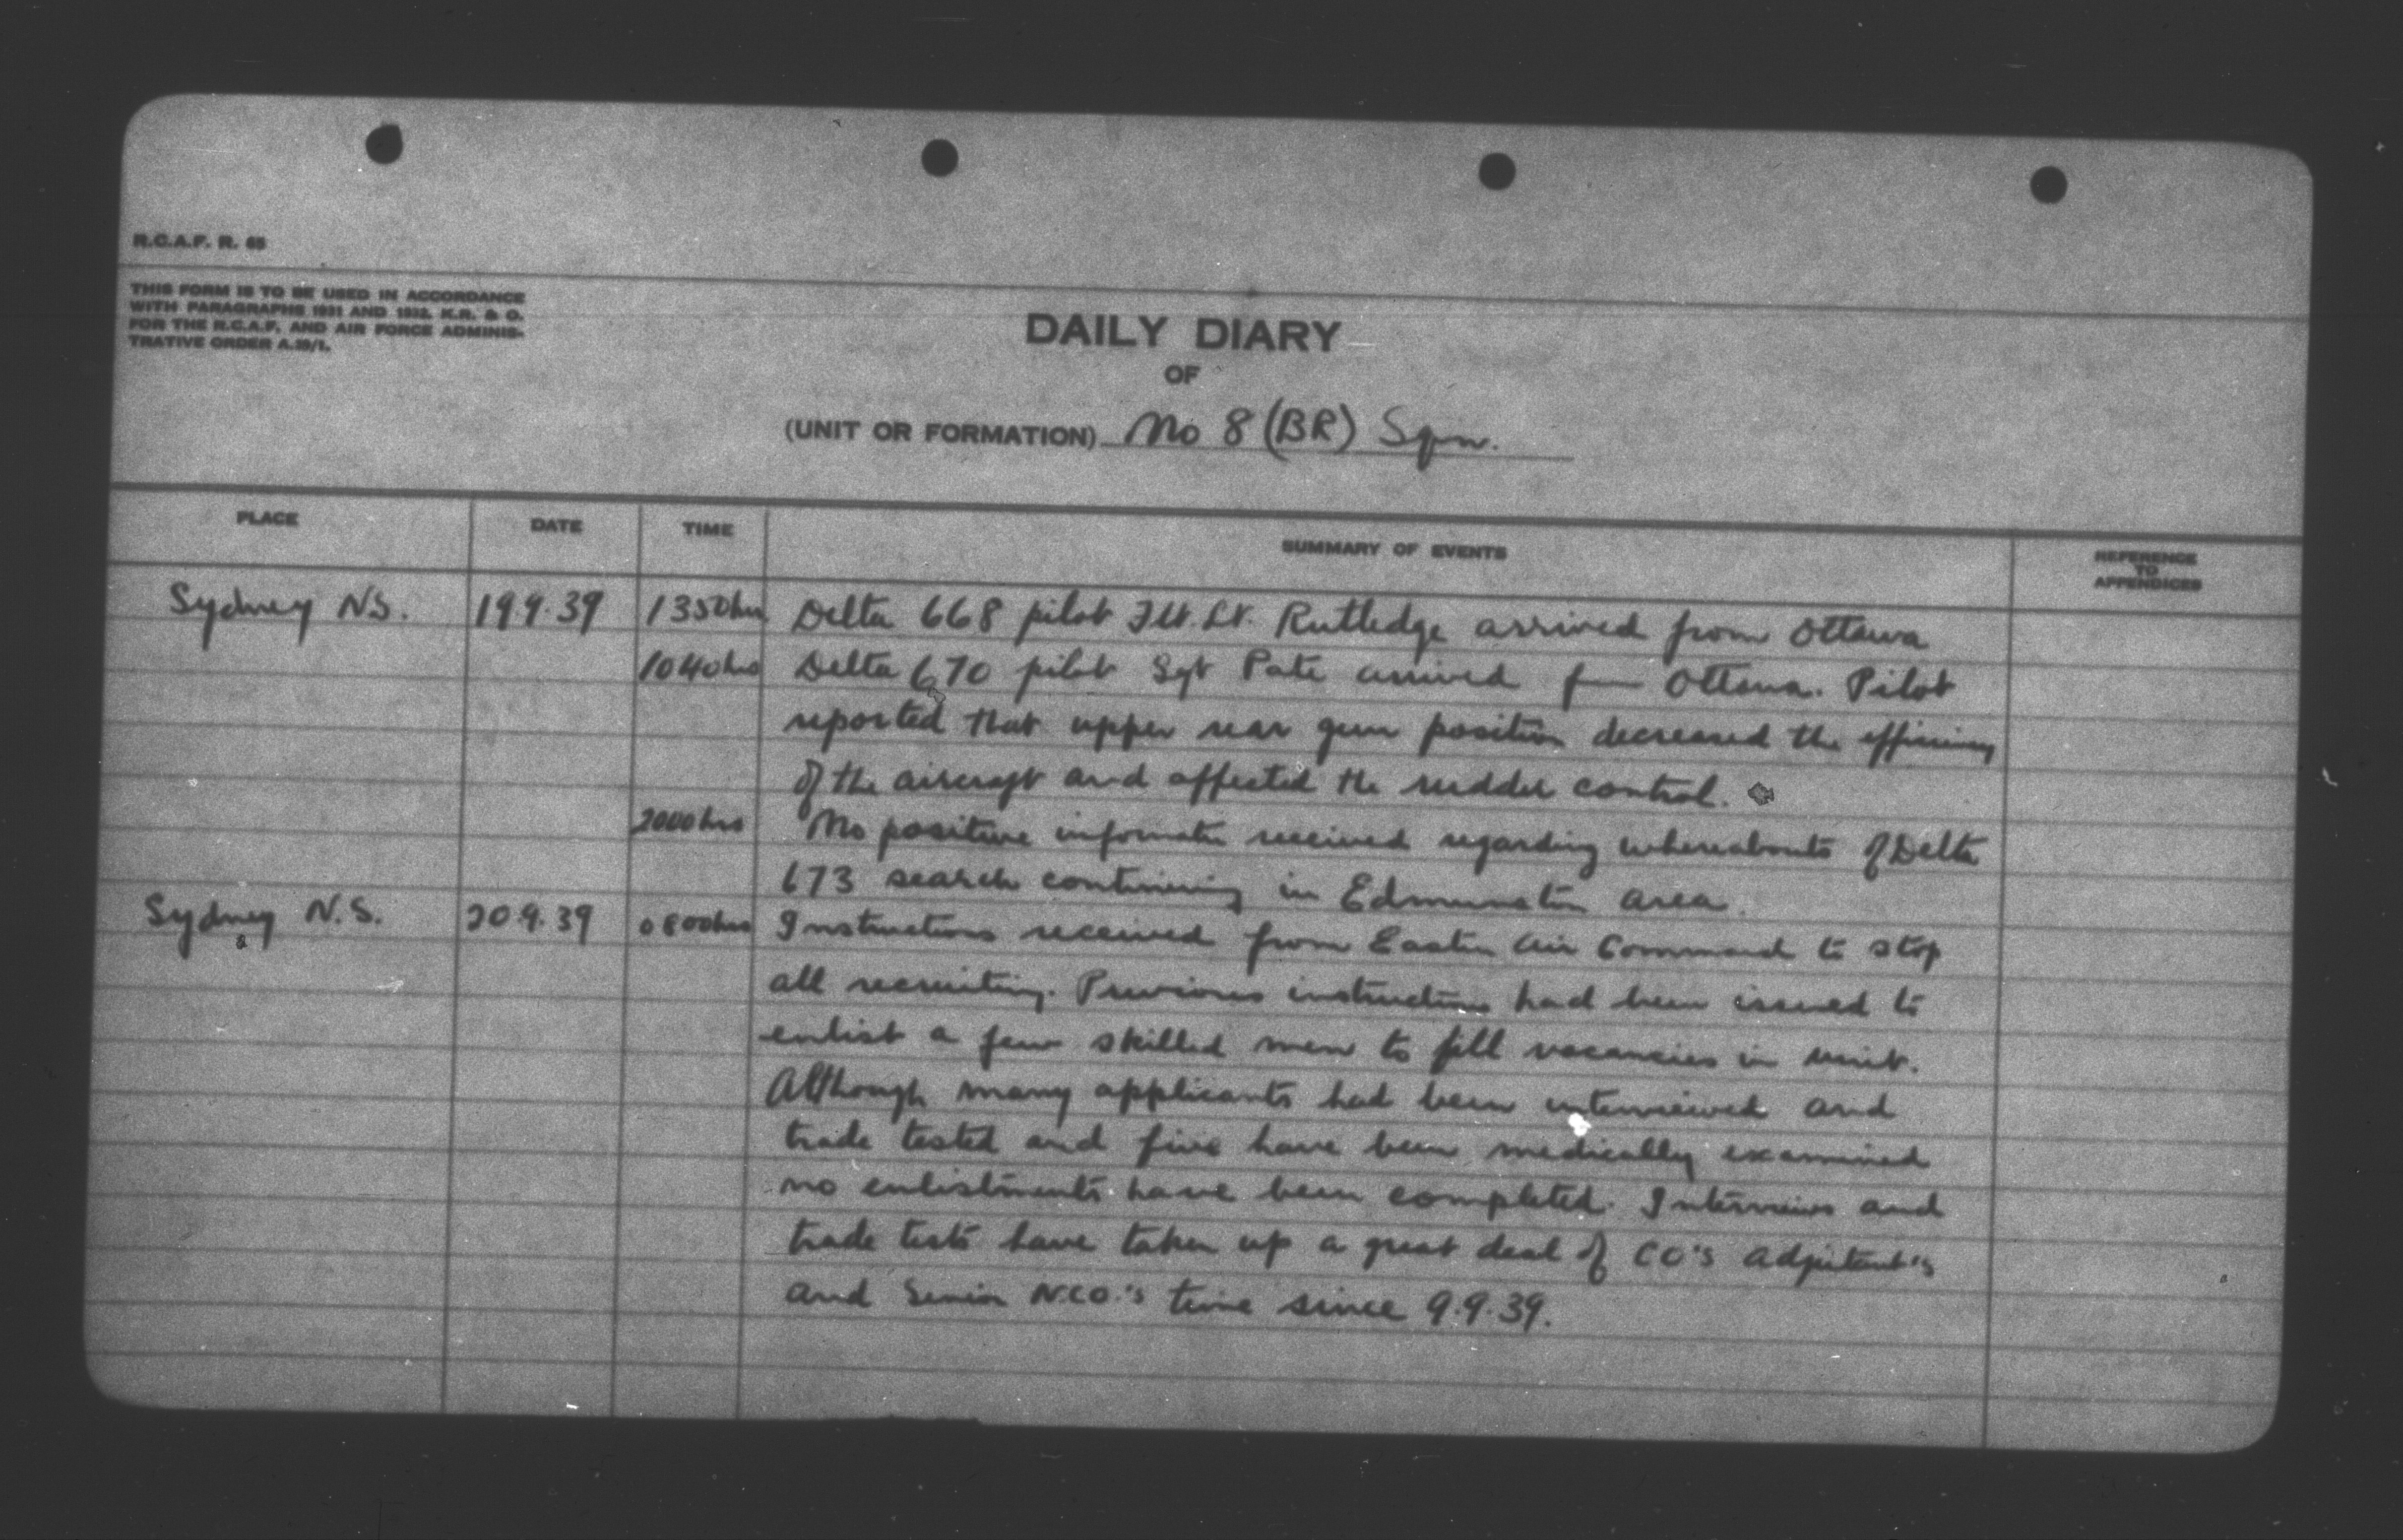 R.C.A.F. R. 65
THIS FORM IS TO BE USED IN ACCORDANCE
WITH PARAGRAPHS 1931 AND 1932, K.R. & O.
FOR THE R.C.A.F. AND AIR FORCE ADMINIS-
TRATIVE ORDER A.10/1.
DAILY DIARY
OF
(UNIT OR FORMATION) No 8 (BR) Sqn.
PLACE DATE TIME SUMMARY OF EVENTS REFERENCE TO APPENDICES
Sydney N.S. 19.9.39 1350hrs Delta 668 pilot Flt. Lt. Rutledge arrived from Ottawa
1040hrs Delta 670 pilot Sgt Pate arrived from Ottawa. Pilot
reported that upper rear gun position decreased the efficiency
of the aircraft and affected the rudder control.
2000hrs No positive information received regarding whereabouts of Delta
673 search continuing in Edmunston area.
Sydney N.S. 20.9.39 0800hrs Instructions received from Eastern Air Command to stop
all recruiting. Previous instructions had been issued to
enlist a few skilled men to fill vacancies in unit.
Although many applicants had been interviewed and
trade tested and five have been medically examined
no enlistments have been completed. Interviews and
trade tests have taken up a great deal of CO's adjutant's
and Senior N.C.O.'s time since 9.9.39.